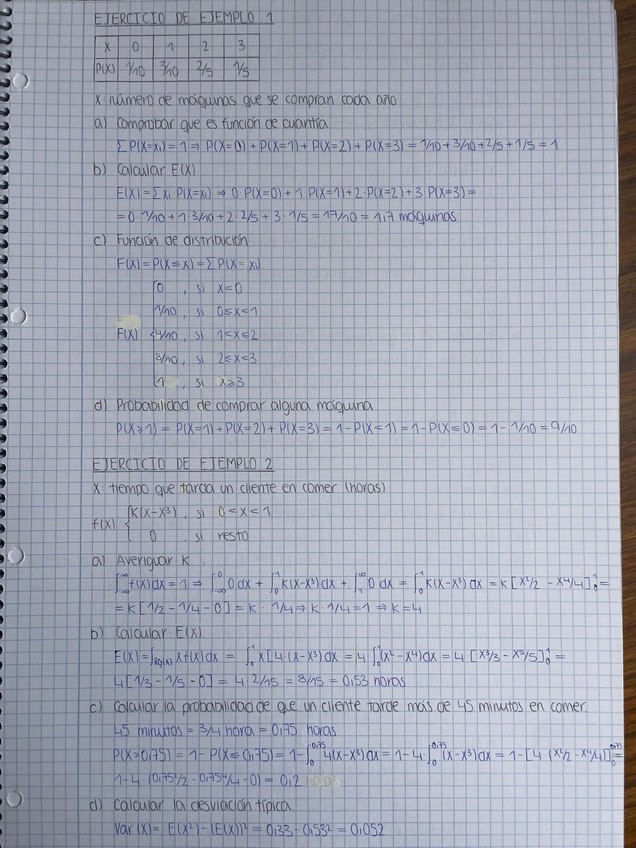 EJERCICIO DE EJEMPLO 1
X 0 1 2 3
P(X) 1/10 3/10 2/5 1/5
X: número de máquinas que se compran cada año
a) Comprobar que es función de cuantía
∑P(X=xi) = 1 ⇒ P(X=0) + P(X=1) + P(X=2) + P(X=3) = 1/10 + 3/10 + 2/5 + 1/5 = 1
b) Calcular E(X)
E(X) = ∑xi P(X=xi) ⇒ 0·P(X=0) + 1·P(X=1) + 2·P(X=2) + 3·P(X=3) =
= 0·1/10 + 1·3/10 + 2·2/5 + 3·1/5 = 17/10 = 1,7 máquinas
c) Función de distribución
F(X) = P(X≤x) = ∑P(X=xi)
0 , si x<0
1/10 , si 0≤x<1
F(X) { 4/10 , si 1<x≤2
8/10 , si 2≤x<3
1 , si x≥3
d) Probabilidad de comprar alguna máquina
P(X≥1) = P(X=1) + P(X=2) + P(X=3) = 1 - P(X<1) = 1 - P(X≤0) = 1 - 1/10 = 9/10
EJERCICIO DE EJEMPLO 2
X: tiempo que tarda un cliente en comer (horas)
K(X-X³) , si 0<x<1
f(X) {
0 , si resto
a) Averiguar K
∫_{-∞}^{∞} f(x)dx = 1 ⇒ ∫_{-∞}^{0} 0 dx + ∫_0^1 K(X-X³)dx + ∫_1^∞ 0 dx = ∫_0^1 K(X-X³) dx = K [X²/2 - X⁴/4]_0^1 =
= K [1/2 - 1/4 - 0] = K · 1/4 ⇒ K · 1/4 = 1 ⇒ K = 4
b) Calcular E(X)
E(X) = ∫ x f(x) dx = ∫_0^1 X[4·(X-X³)dx = 4 ∫_0^1 (X²-X⁴)dx = 4 [X³/3 - X⁵/5]_0^1 =
4[1/3 - 1/5 - 0] = 4·2/15 = 8/15 = 0,53 horas
c) Calcular la probabilidad de que un cliente tarde más de 45 minutos en comer.
45 minutos = 3/4 hora = 0,75 horas
P(X>0,75) = 1 - P(X≤0,75) = 1 - ∫_0^{0,75} 4(X-X³)dx = 1 - 4·∫_0^{0,75} (X-X³)dx = 1 - [4·(X²/2 - X⁴/4]_0^{0,75} =
1 - 4·(0,75²/2 - 0,75⁴/4 - 0) = 0,2
d) Calcular la desviación típica
Var(X) = E(X²) - (E(X))² = 0,33 - 0,53² = 0,052